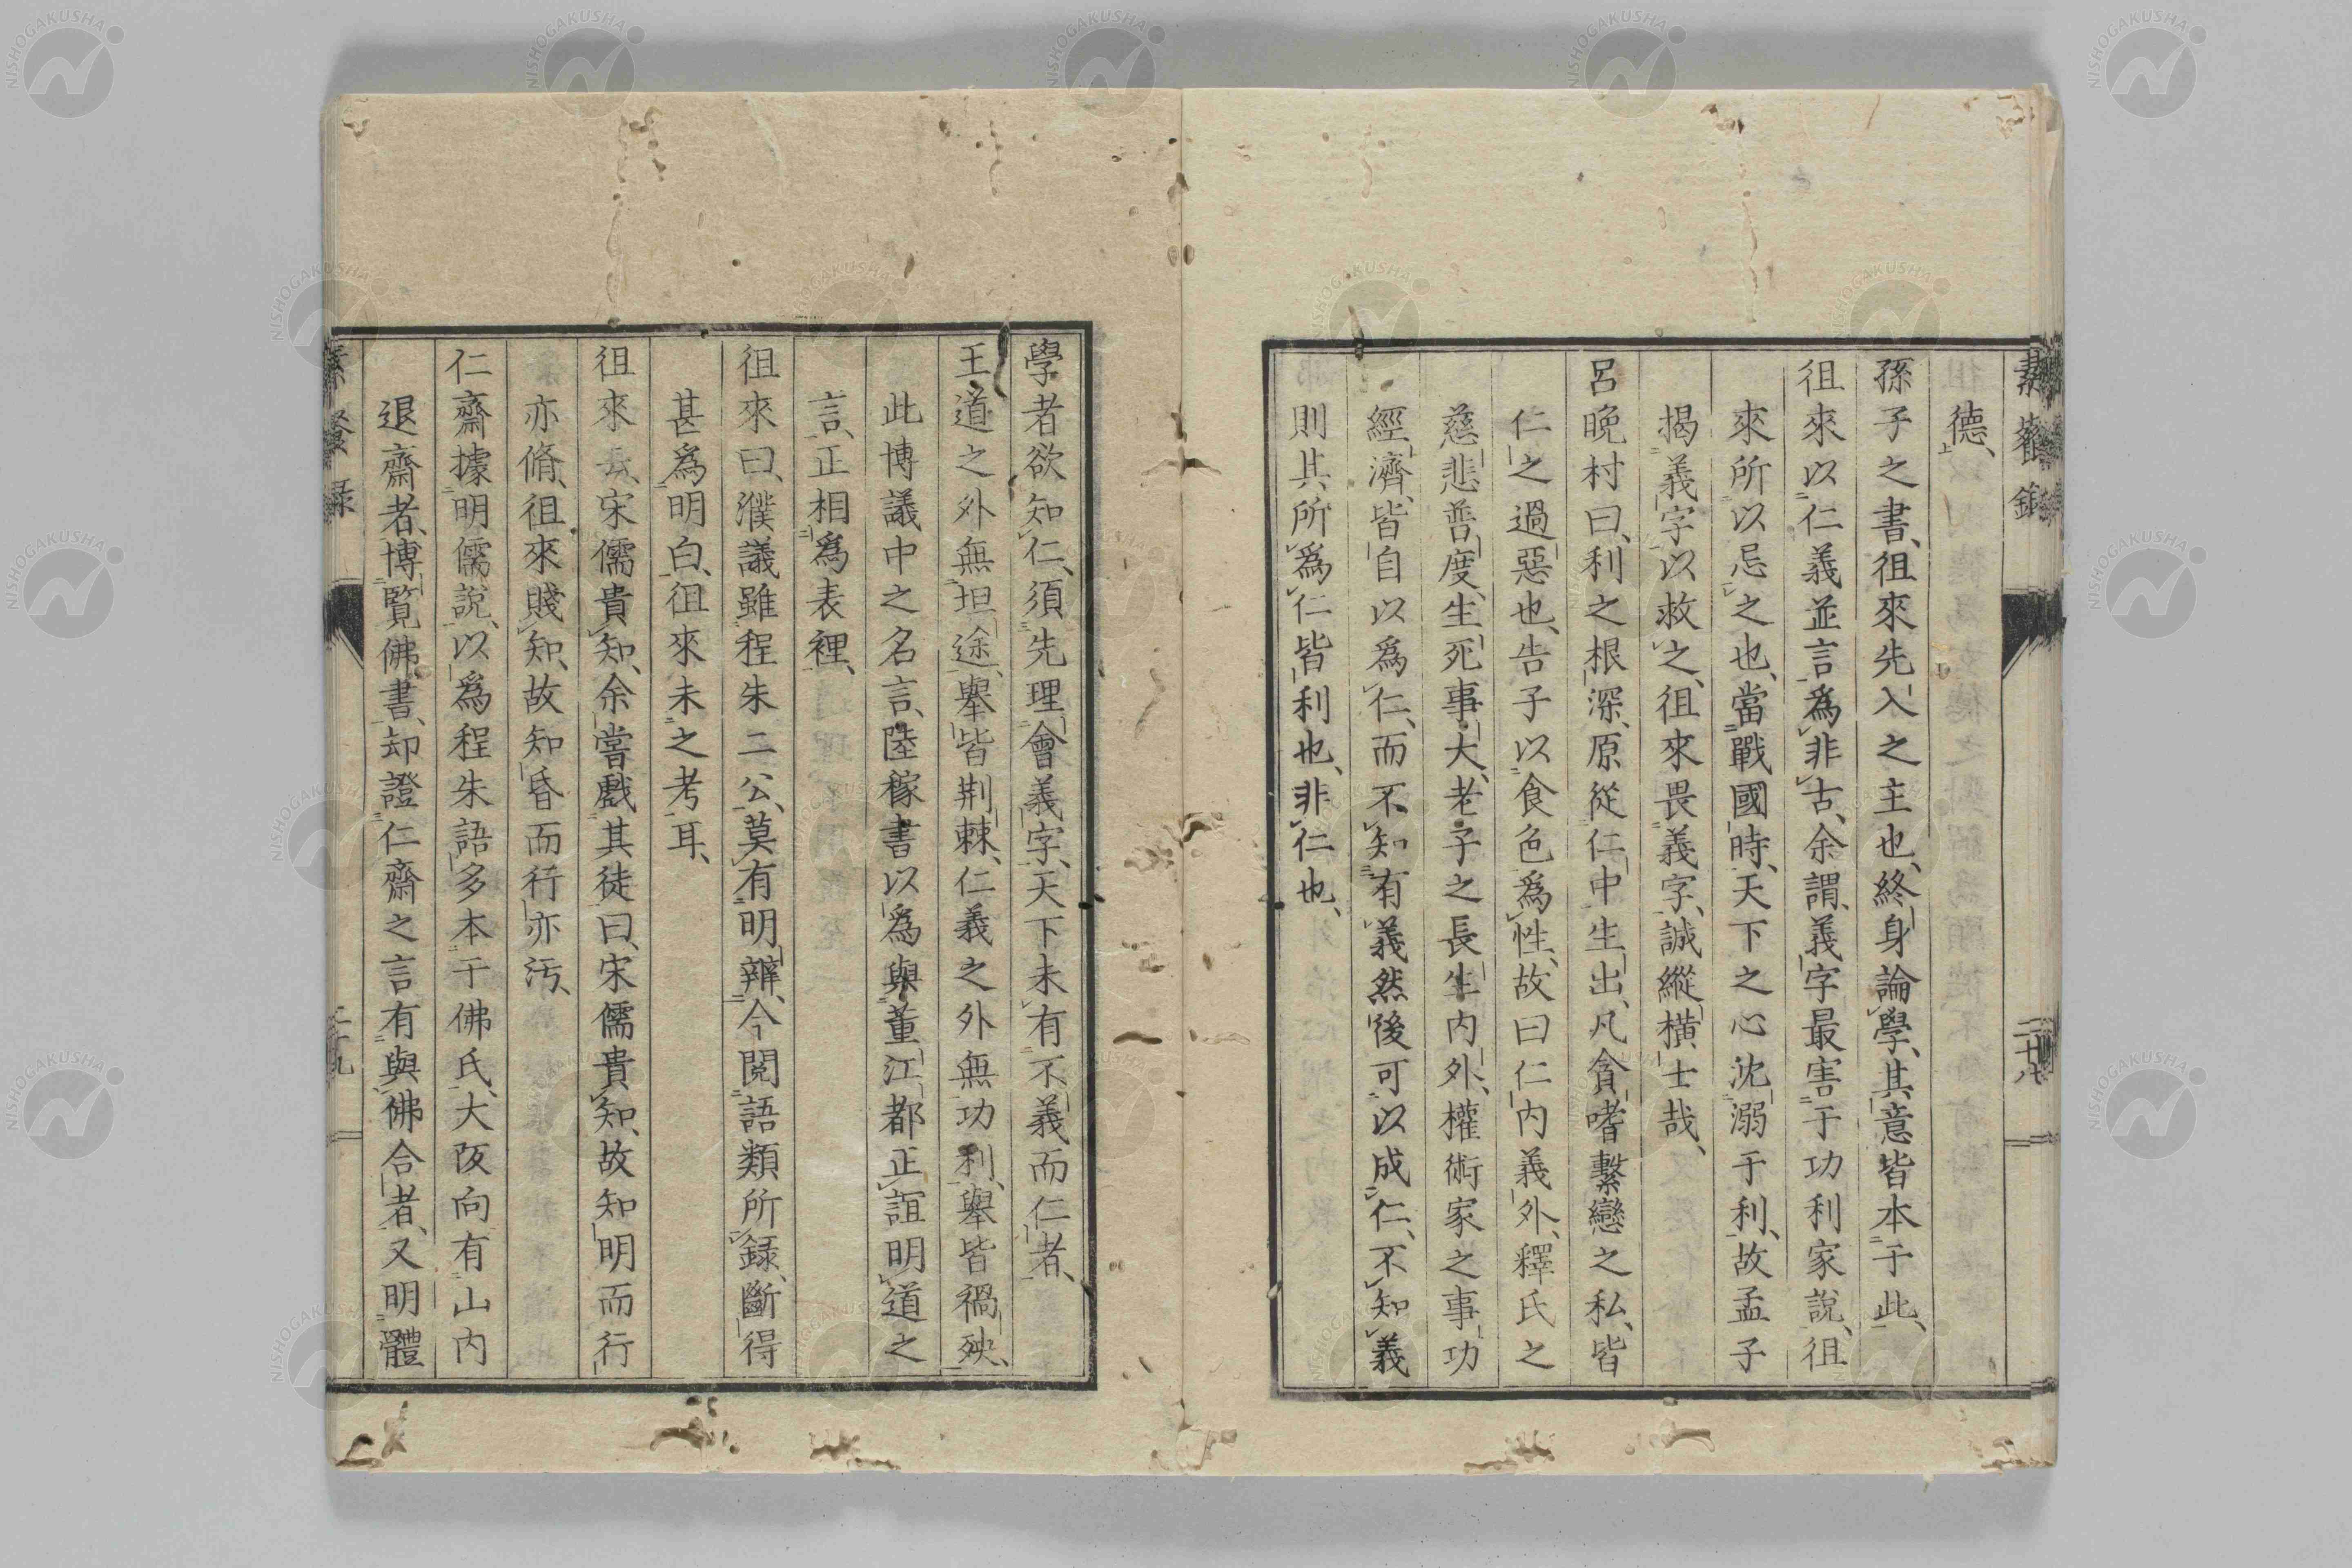 德、
孫子之書、徂來先入之主也、終身論學、其意皆本于此、
徂來以仁義並言爲非古、余謂、義字最害于功利家說、徂
來所以忌之也、當戰國時、天下之心沈溺于利、故孟子
揭義字以救之、徂來畏義字、誠縱橫士哉、
呂晩村曰、利之根深、原從仁中生出、凡貪嗜繫戀之私、皆
仁之過惡也、告子以食色爲性、故曰仁内義外、釋氏之
慈悲普度、生死事大、老子之長生内外、權術家之事功
經濟、皆自以爲仁、而不知有義然後可以成仁、不知義
則其所爲仁皆利也、非仁也、
二十八
學者欲知仁、須先理會義字、天下未有不義而仁者、
王道之外無坦途、擧皆荆棘、仁義之外無功利、擧皆禍殃、
此博議中之名言、陸稼書以爲與董江都正誼明道之
言、正相爲表裡、
徂來曰、濮議雖程朱二公、莫有明辯、今閲語類所録、斷得
甚爲明白、徂來未之考耳、
徂來云、宋儒貴知、余嘗戲其徒曰、宋儒貴知、故知明而行
亦脩、徂來賤知、故知昏而行亦汚、
仁齋據明儒說、以爲程朱語多本于佛氏、大阪向有山内
退齋者、博覽佛書、却證仁齋之言有與佛合者、又明體
二十九
NISHOGAKUSHA